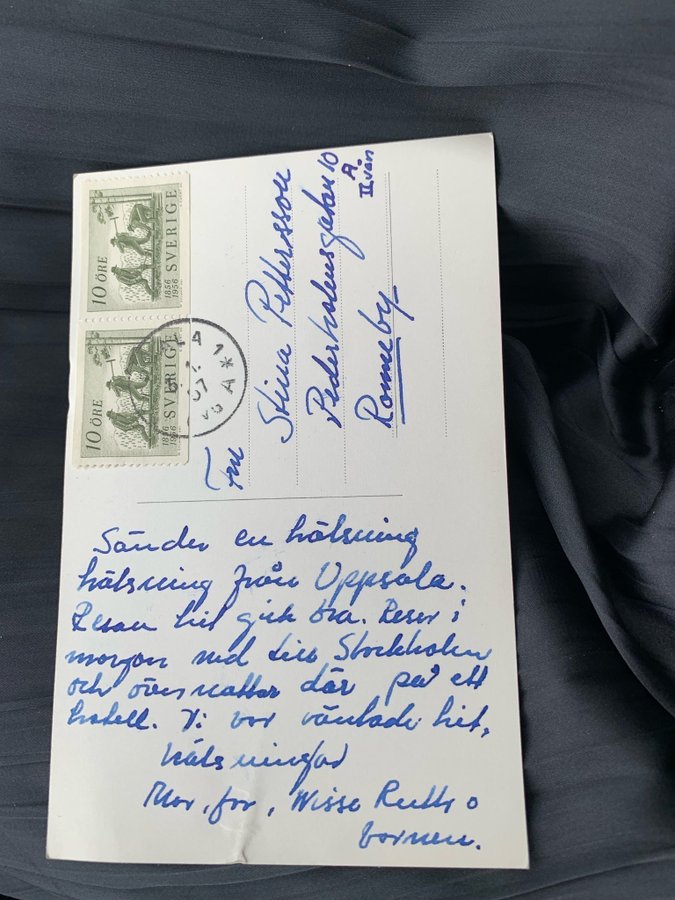 10 ÖRE
1856
1956
SVERIGE
10 ÖRE
1856
1956
SVERIGE
Fru
Stina Pettersson
Pederholmsgatan 10
A
II vån
Ronneby
Sänder en hälsning
hälsning från Uppsala.
Resan hit gick bra. Reser i
morgon ned till Stockholm
och övernattar där på ett
hotell. Vi var väntade hit,
hälsningar
Mor, far, Wisse Ruth o
barnen.